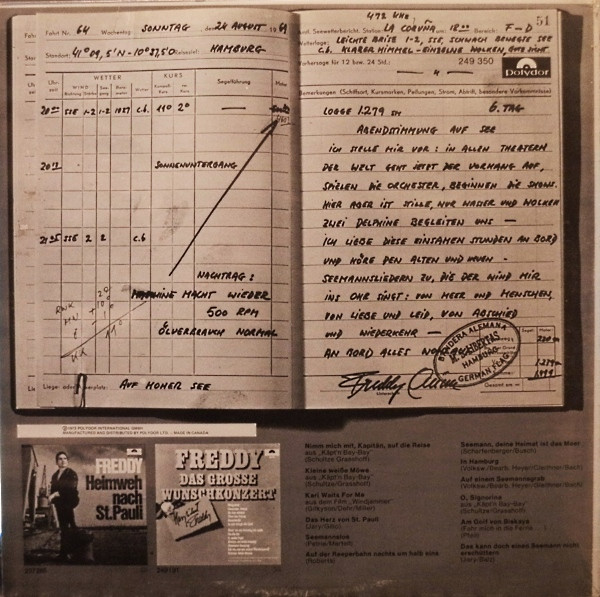 Fahrt Nr. 64 Wochentag: SONNTAG, den 24 AUGUST 1969
Standort: 41° 09,5' N - 10° 37,5' O Reiseziel: HAMBURG
Uhrzeit
WETTER
KURS
Segelführung
WIND
Wetter
20 00 SSE 1-2 1-2 1027 c.b. 110 2°
SONNENUNTERGANG
21 25 SSE 2 2 c.b.
NACHTRAG:
MASCHINE MACHT WIEDER
500 RPM
ÖLVERBRAUCH NORMAL
Liege- oder Ankerplatz: AUF HOHER SEE
472 kHz
51
Seewetterbericht: Station: LA CORUÑA um 18 00 Bereich: F-D
Wetterlage: LEICHTE BRISE 1-2, SSE, SCHWACH BEWEGTE SEE
c.b. KLARER HIMMEL - EINZELNE WOLKEN, GUTE SICHT
Vorhersage für 12 bzw. 24 Std.:
249 350
Polydor
4
Bemerkungen (Schiffsort, Kursmarken, Peilungen, Strom, Abdrift, besondere Vorkommnisse)
LOGGE 1279 sm 6. TAG
ABENDSTIMMUNG AUF SEE
ICH STELLE MIR VOR: IN ALLEN THEATERN
DER WELT GEHT JETZT DER VORHANG AUF,
SPIELEN DIE ORCHESTER, BEGINNEN DIE SHOWS.
HIER ABER IST STILLE, NUR WASSER UND WOLKEN
ZWEI DELPHINE BEGLEITEN UNS —
ICH LIEBE DIESE EINSAMEN STUNDEN AN BORD
UND HÖRE DEN ALTEN UND NEUEN -
SEEMANNSLIEDERN ZU, DIE DER WIND MIR
INS OHR SINGT: VON MEER UND MENSCHEN,
VON LIEBE UND LEID, VON ABSCHIED
UND WIEDERKEHR —
AN BORD ALLES
BANDERA ALEMANA
HAMBURG
GERMAN FLAG
Freddy Quinn
Gesamt am
© 1972 POLYDOR INTERNATIONAL GMBH
MANUFACTURED AND DISTRIBUTED BY POLYDOR LTD. - MADE IN CANADA
FREDDY
Heimweh
nach
St. Pauli
FREDDY
DAS GROSSE
WUNSCHKONZERT
Nimm mich mit, Kapitän, auf die Reise
aus „Käpt'n Bay-Bay"
(Schultze/Grasshoff)
Kleine weiße Möwe
aus „Käpt'n Bay-Bay"
(Schultze/Grasshoff)
Kari Waits For Me
aus dem Film „Windjammer"
(Gilkyson/Dehr/Miller)
Das Herz von St. Pauli
(Jary/Balz)
Seemannslos
Auf der Reeperbahn nachts um halb eins
(Roberts)
Seemann, deine Heimat ist das Meer
(Scharfenberger/Busch)
In Hamburg
Auf einem Seemannsgrab
O, Signorina
aus „Käpt'n Bay-Bay"
(Schultze/Grasshoff)
Am Golf von Biskaya
(Fahr mich in die Ferne . . .)
(Pfeil)
Das kann doch einen Seemann nicht
erschüttern
(Jary/Balz)